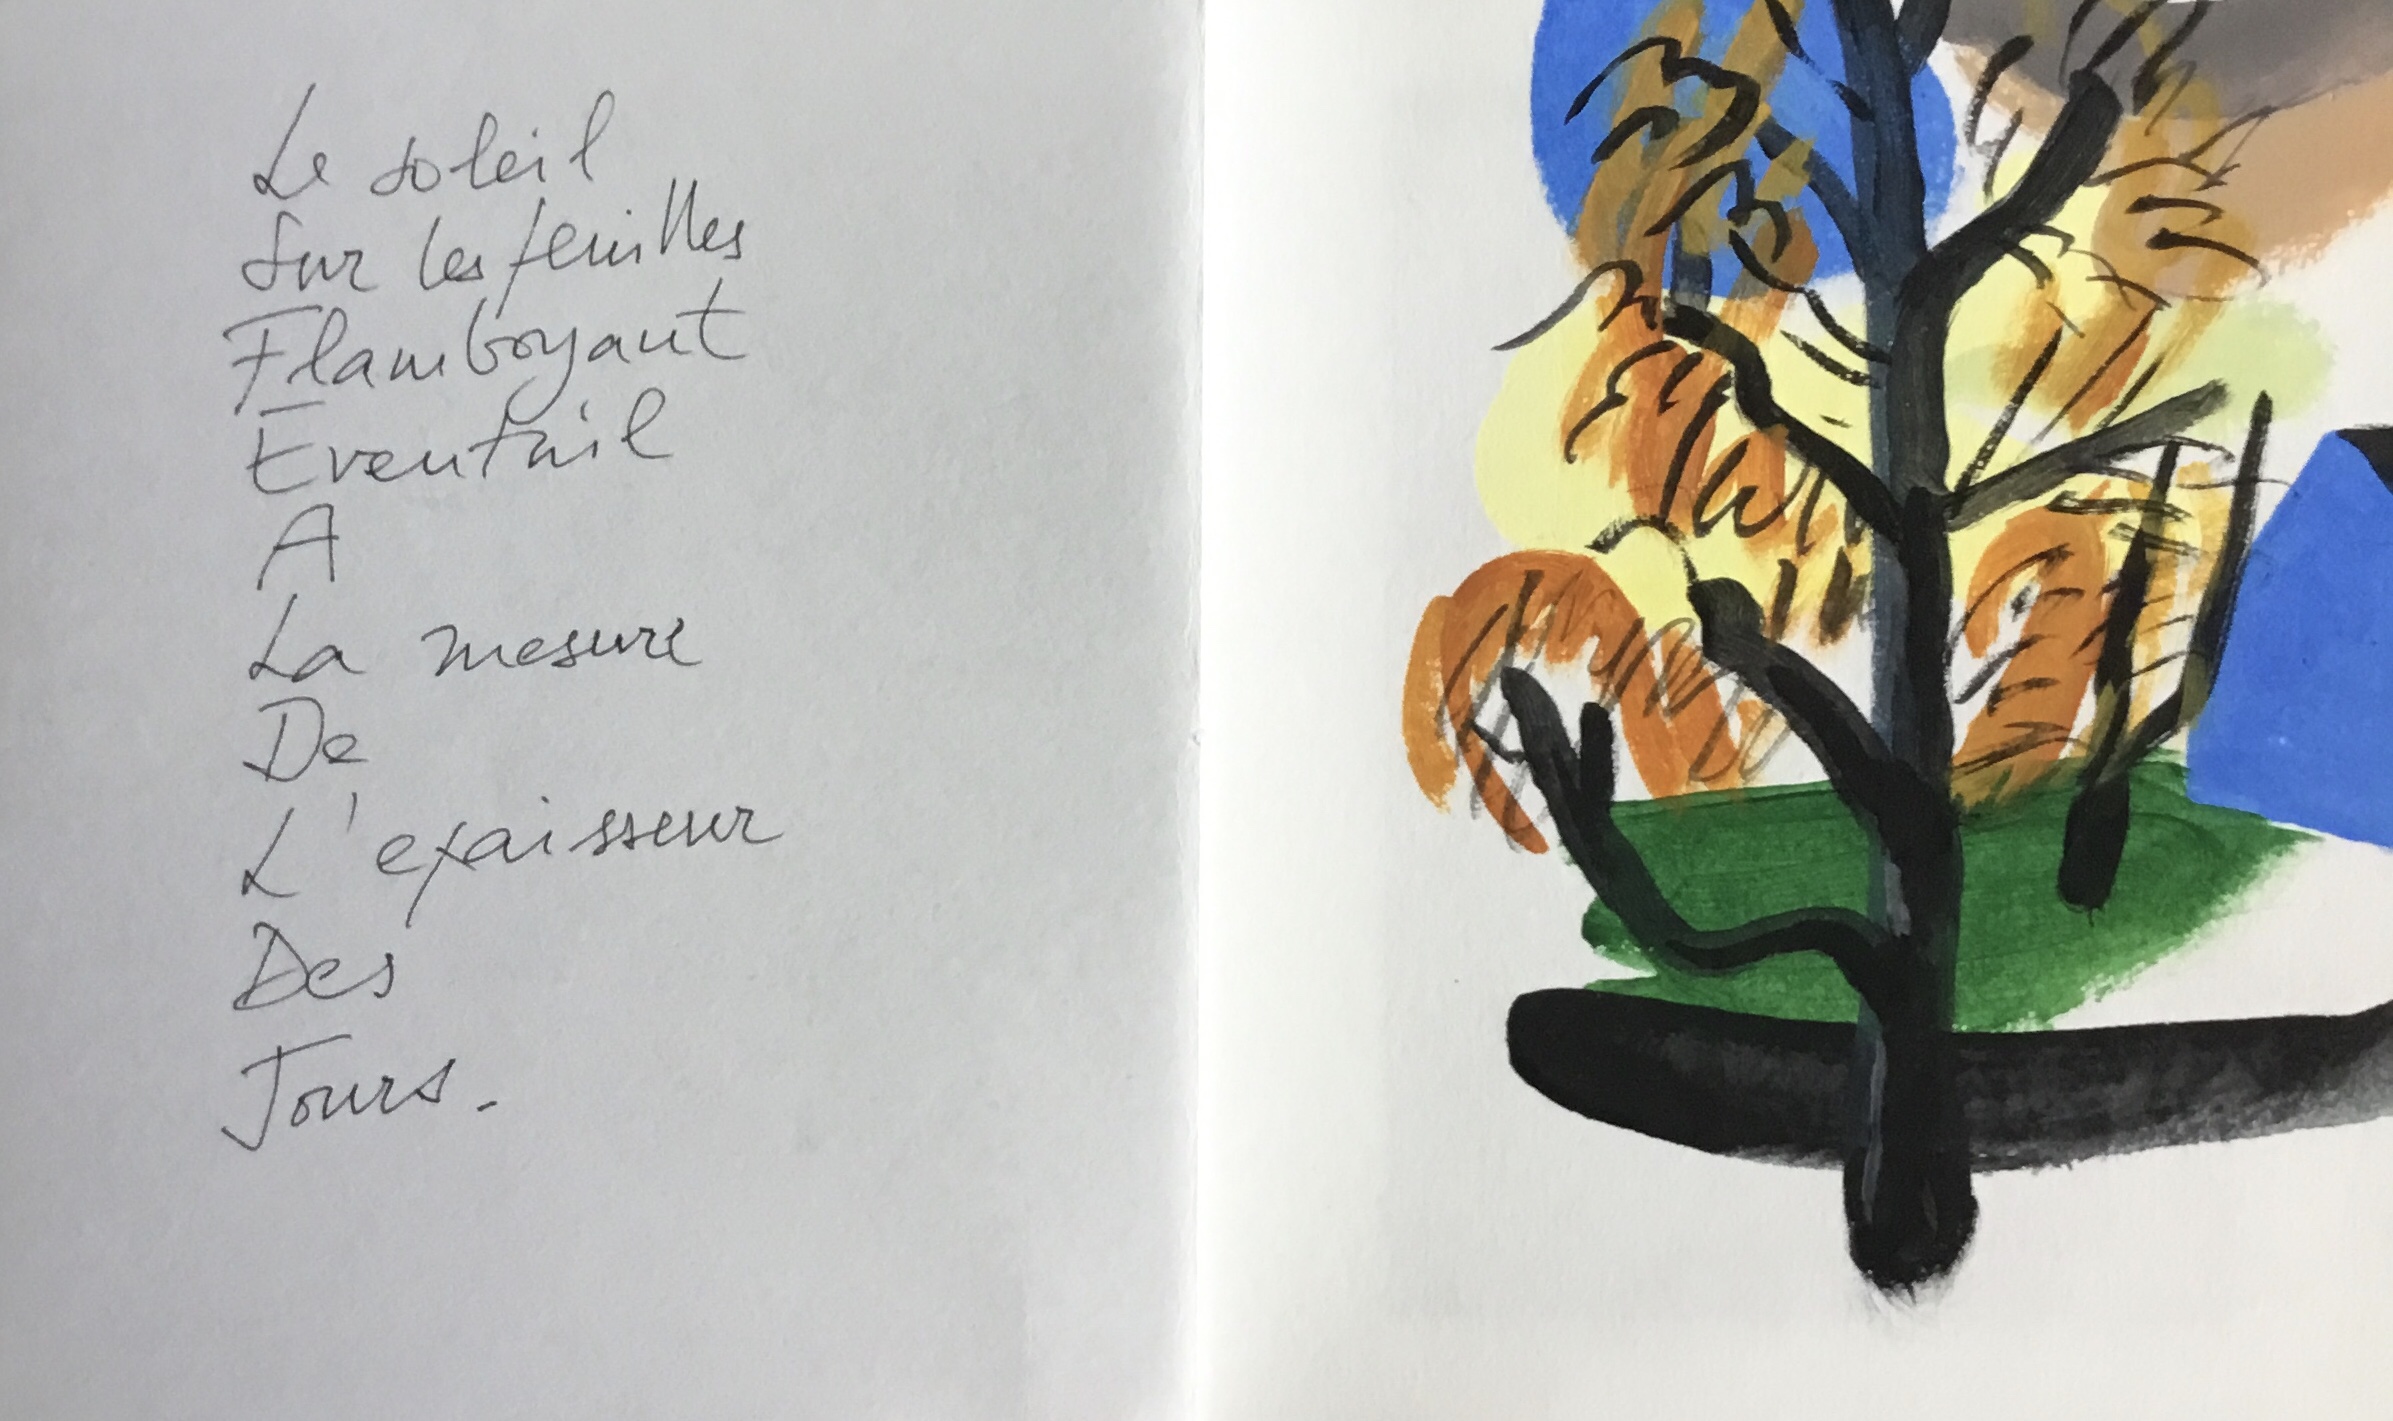 Le soleil
Sur les feuilles
Flamboyant
Eventail
A
La mesure
De
L'epaisseur
Des
Jours.